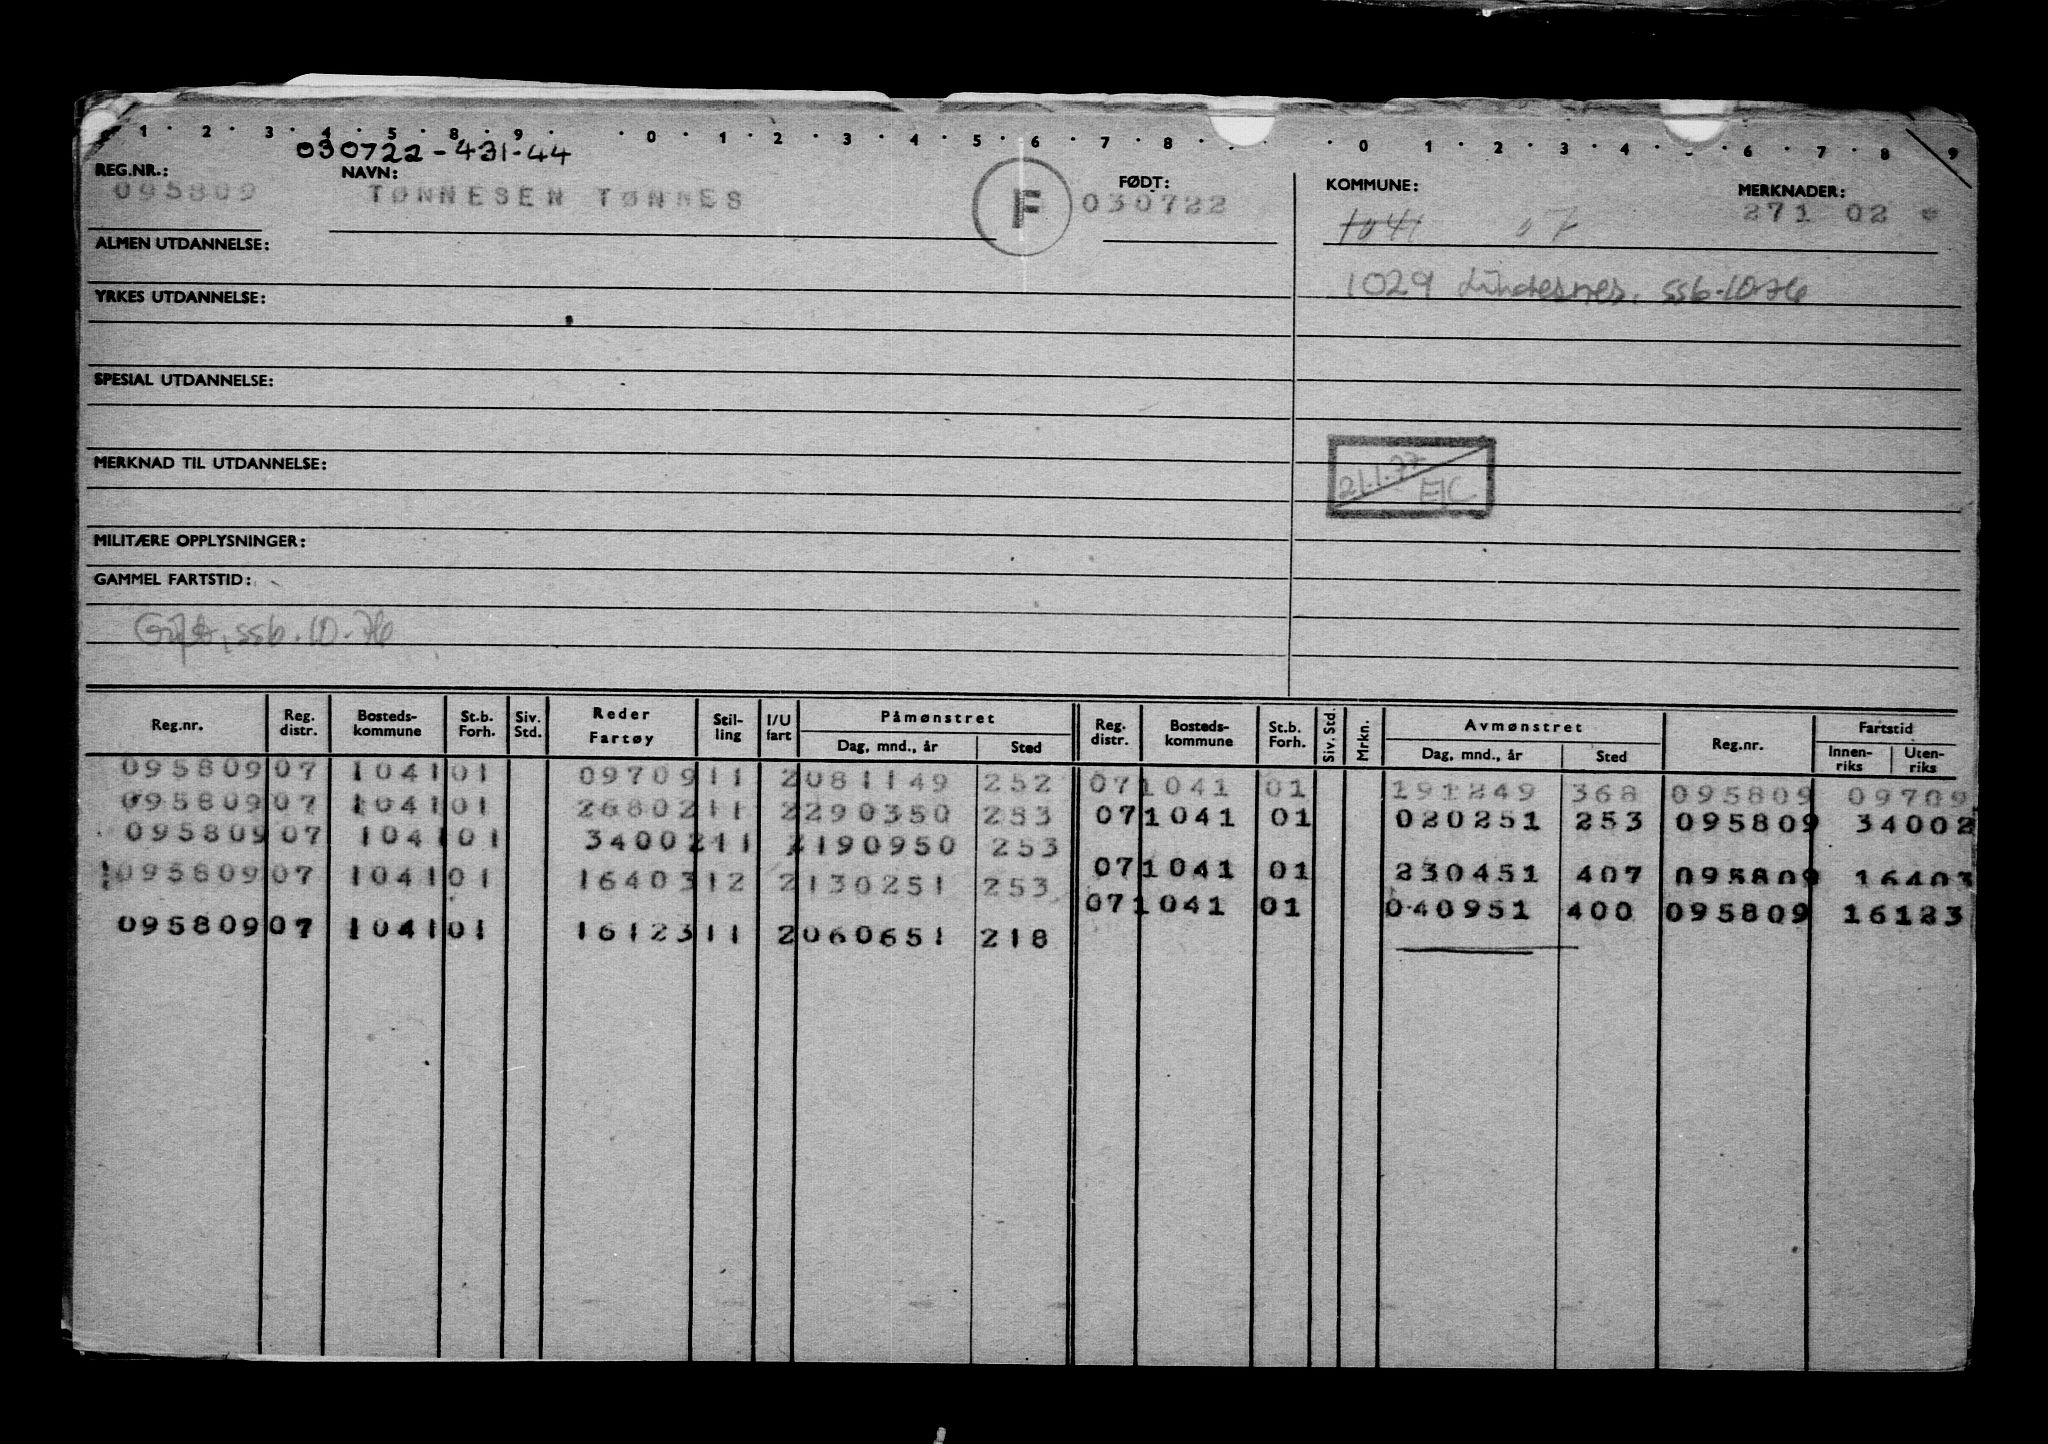 1 · 2 · 3 · 4 · 5 · 8 · 9 · · 0 · 1 · 2 · 3 · 4 · 5 · 6 · 7 · 8 · · · 0 · 1 · 2 · 3 · 4 · · 6 · 7 · 8 9
030722-431-44
REG.NR.: NAVN: FØDT: KOMMUNE: MERKNADER:
095809 TØNNESEN TØNNES F 030722 1041 07 271 02
ALMEN UTDANNELSE:
YRKES UTDANNELSE: 1029 Lindesnes, ssb-10-76
SPESIAL UTDANNELSE:
MERKNAD TIL UTDANNELSE: 21.1.77 EC
MILITÆRE OPPLYSNINGER:
GAMMEL FARTSTID:
Gift, ssb-10-76
Reg.nr. Reg. distr. Bosteds-kommune St.b. Forh. Siv. Std. Reder Fartøy Stil-ling I/U fart Påmønstret Dag, mnd., år Sted Reg. distr. Bosteds-kommune St.b. Forh. Siv. Std. Mrkn. Avmønstret Dag, mnd., år Sted Reg.nr. Fartstid Innen-riks Uten-riks
095809 07 1041 01 09709 11 2 081149 252 07 1041 01 191249 368 095809 09709
095809 07 1041 01 26802 11 2 290350 253 07 1041 01 020251 253 095809 34002
095809 07 1041 01 34002 11 2 190950 253
095809 07 1041 01 16403 12 2 130251 253 07 1041 01 230451 407 095809 16403
095809 07 1041 01 16123 11 2 060651 218 07 1041 01 040951 400 095809 16123